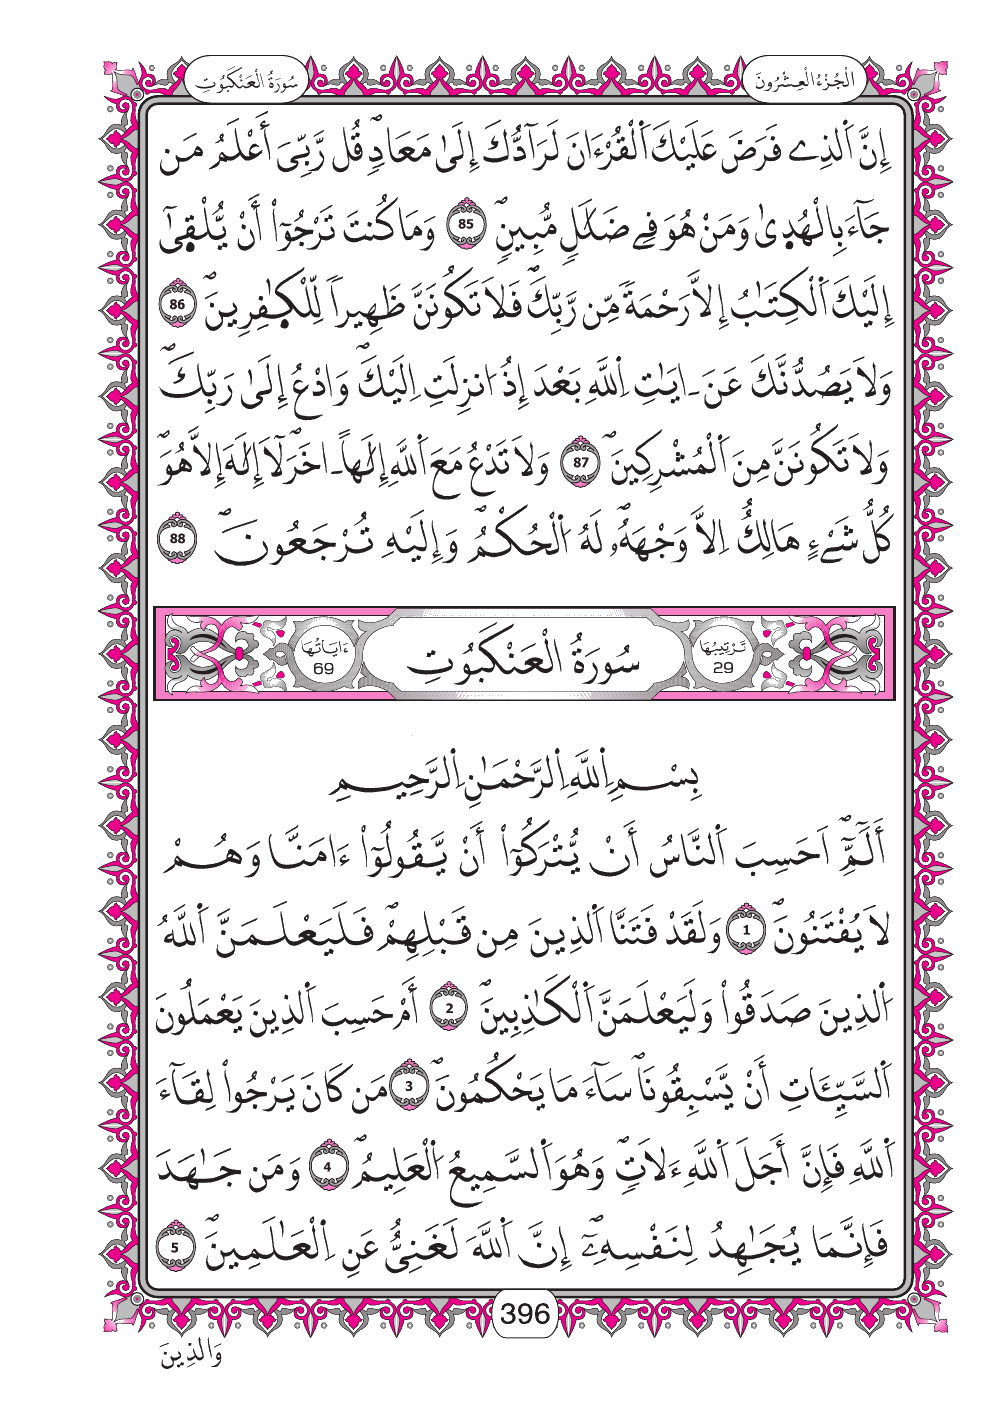 اَلْجُزْءُ الْعِشْرُونَ
سُورَةُ الْعَنْكَبُوتِ
إِنَّ اَلذِے فَرَضَ عَلَيْكَ اَلْقُرْءَانَ لَرَآدُّكَ إِلَىٰ مَعَادٖۖ قُل رَّبِّىَ أَعْلَمُ مَن
جَآءَ بِالْهُد۪ىٰ وَمَنْ هُوَ فِے ضَلَٰلٖ مُّبِينٖۖ 85 وَمَا كُنتَ تَرْجُوٓاْ أَنْ يُّلْق۪ىٰٓ
إِلَيْكَ اَلْكِتَٰبُ إِلاَّ رَحْمَةٗ مِّن رَّبِّكَۖ فَلَا تَكُونَنَّ ظَهِيراٗ لِّلْكٰ۪فِرِينَۖ 86
وَلَا يَصُدُّنَّكَ عَنَ ـ ايَٰتِ اِللَّهِ بَعْدَ إِذُ ا۟نزِلَتِ اِلَيْكَۖ وَادْعُ إِلَىٰ رَبِّكَۖ
وَلَا تَكُونَنَّ مِنَ اَلْمُشْرِكِينَۖ 87 وَلَا تَدْعُ مَعَ اَللَّهِ إِلَٰهاً ـ اخَرَۖ لَا إِلَٰهَ إِلاَّ هُوَۖ
كُلُّ شَےْءٍ هَالِكٌ اِلاَّ وَجْهَهُۥۖ لَهُ اُ۬لْحُكْمُ وَإِلَيْهِ تُرْجَعُونَۖ 88
تَرْتِيبُهَا 29
سُورَةُ الْعَنْكَبُوتِ
ءَايَاتُهَا 69
بِسْمِ اِللَّهِ اِلرَّحْمَٰنِ اِلرَّحِيمِ
أَلَٓمِّٓۖ اَحَسِبَ اَلنَّاسُ أَنْ يُّتْرَكُوٓاْ أَنْ يَّقُولُوٓاْ ءَامَنَّا وَهُمْ
لَا يُفْتَنُونَۖ 1 وَلَقَدْ فَتَنَّا اَلذِينَ مِن قَبْلِهِمْۖ فَلَيَعْلَمَنَّ اَللَّهُ
اُ۬لذِينَ صَدَقُواْ وَلَيَعْلَمَنَّ اَلْكَٰذِبِينَۖ 2 أَمْ حَسِبَ اَلذِينَ يَعْمَلُونَ
اَلسَّيِّـَٔاتِ أَنْ يَّسْبِقُونَاۖ سَآءَ مَا يَحْكُمُونَۖ 3 مَن كَانَ يَرْجُواْ لِقَآءَ
اَللَّهِ فَإِنَّ أَجَلَ اَللَّهِ ءَلَاتٖۖ وَهُوَ اَلسَّمِيعُ اُ۬لْعَلِيمُۖ 4 وَمَن جَٰهَدَ
فَإِنَّمَا يُجَٰهِدُ لِنَفْسِهِۦٓۖ إِنَّ اَللَّهَ لَغَنِىٌّ عَنِ اِلْعَٰلَمِينَۖ 5
396
وَالذِينَ